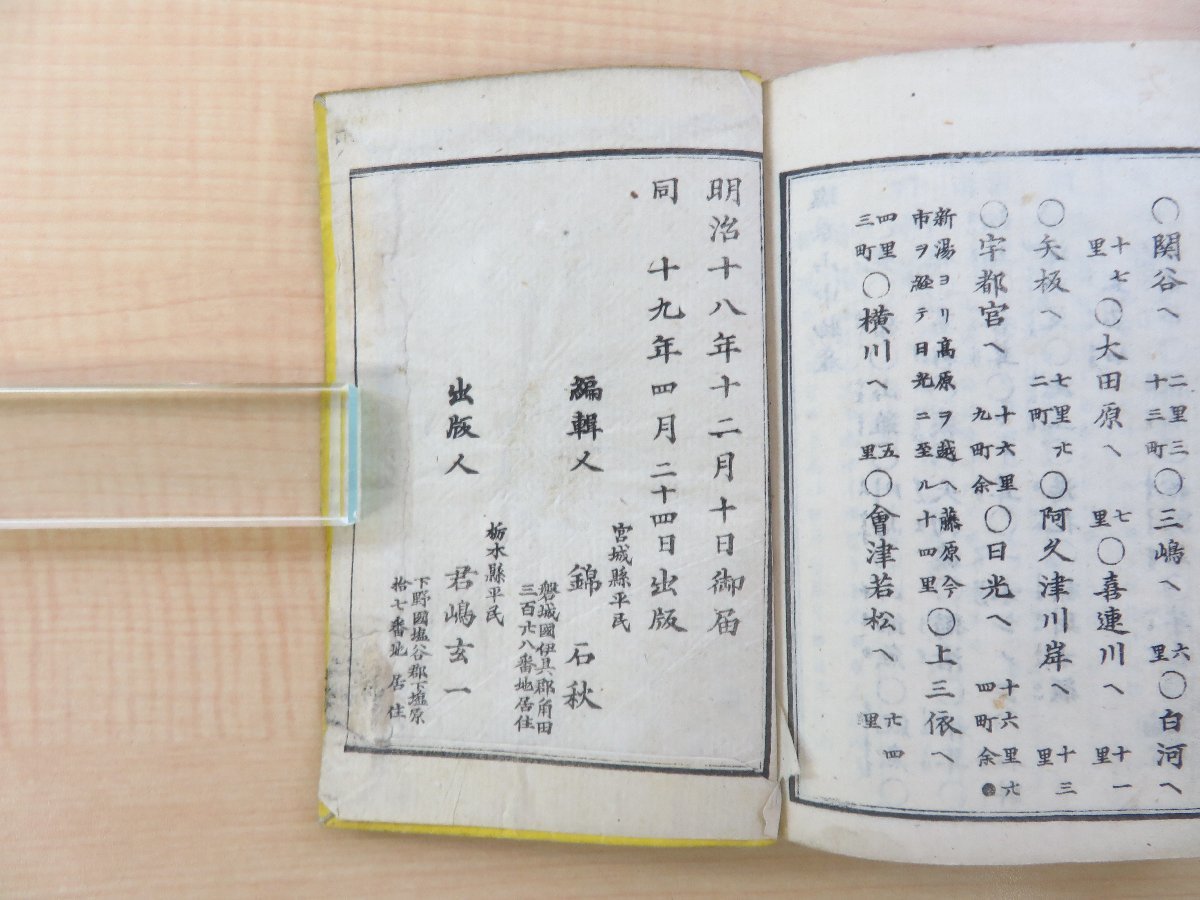 〇関谷へ 二里三十三町〇三嶋へ 六里〇白河へ
十七里〇大田原へ 七里〇喜連川へ 十一里
〇矢板へ 七里廿二町〇阿久津川岸へ 十三里
〇宇都宮へ 十六里九町余〇日光へ 十六里六四町余
新湯ヨリ高原ヲ越ヘ藤原今市ヲ経テ日光ニ至ル十四里〇上三依へ
四里三町〇横川へ 五里〇會津若松へ 廿四里
明治十八年十二月十日御届
同 十九年四月二十四日出版
宮城縣平民
編輯人 錦 石秋
磐城國伊具郡角田
三百廿八番地居住
栃木縣平民
出版人 君嶋玄一
下野國塩谷郡下塩原
拾七番地 居住